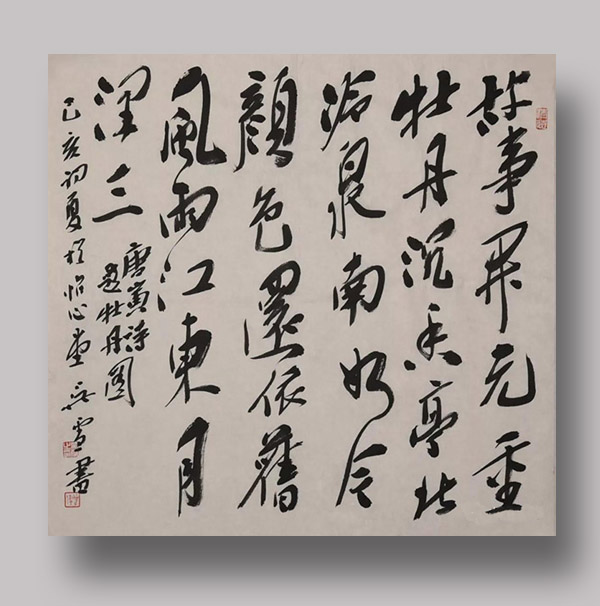 故事開元重
牡丹沉香亭北
浴泉南如今
顏色還依舊
風雨江東月
三
唐寅詩
題牡丹圖
己亥初夏於怡心堂吳雪書